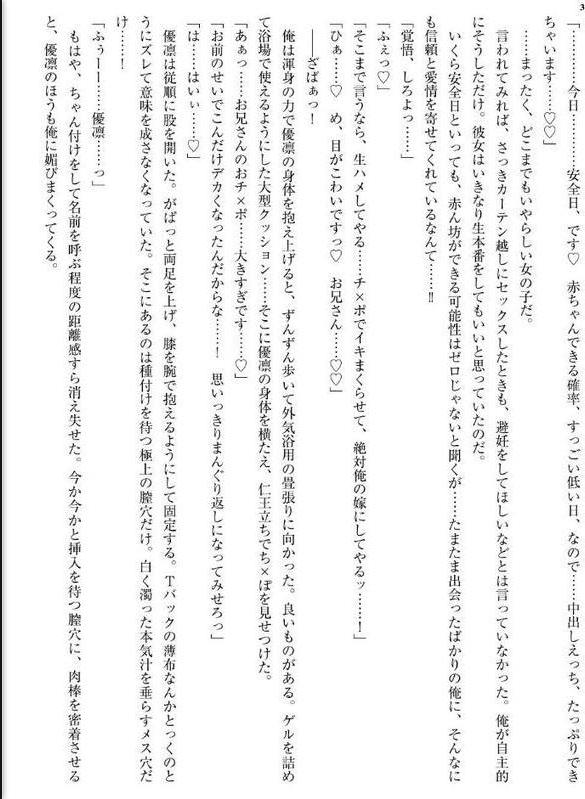 3
「…………今日…………安全日、です♡　赤ちゃんできる確率、すっごい低い日、なので……中出しえっち、たっぷりでき
ちゃいます……♡♡」
……まったく、どこまでもいやらしい女の子だ。
言われてみれば、さっきカーテン越しにセックスしたときも、避妊をしてほしいなどとは言っていなかった。俺が自主的
にそうしただけ。彼女はいきなり生本番をしてもいいと思っていたのだ。
いくら安全日といっても、赤ん坊ができる可能性はゼロじゃないと聞くが……たまたま出会ったばかりの俺に、そんなに
も信頼と愛情を寄せてくれているなんて……‼
「覚悟、しろよっ……」
「ふぇっ♡」
「そこまで言うなら、生ハメしてやる……チ×ポでイキまくらせて、絶対俺の嫁にしてやるッ……！」
「ひぁ……♡　め、目がこわいですっ♡　お兄さん……♡♡」
――ざばぁっ！
俺は渾身の力で優凛の身体を抱え上げると、ずんずん歩いて外気浴用の畳張りに向かった。良いものがある。ゲルを詰め
て浴場で使えるようにした大型クッション……そこに優凛の身体を横たえ、仁王立ちでち×ぽを見せつけた。
「あぁっ……お兄さんのおチ×ポ……大きすぎです……♡」
「お前のせいでこんだけデカくなったんだからな……！　思いっきりまんぐり返しになってみせろっ」
「は……はいぃ……♡」
優凛は従順に股を開いた。がばっと両足を上げ、膝を腕で抱えるようにして固定する。Ｔバックの薄布なんかとっくのと
うにズレて意味を成さなくなっていた。そこにあるのは種付けを待つ極上の膣穴だけ。白く濁った本気汁を垂らすメス穴だ
け……！
「ふぅーー……優凛……っ」
もはや、ちゃん付けをして名前を呼ぶ程度の距離感すら消え失せた。今か今かと挿入を待つ膣穴に、肉棒を密着させる
と、優凛のほうも俺に媚びまくってくる。